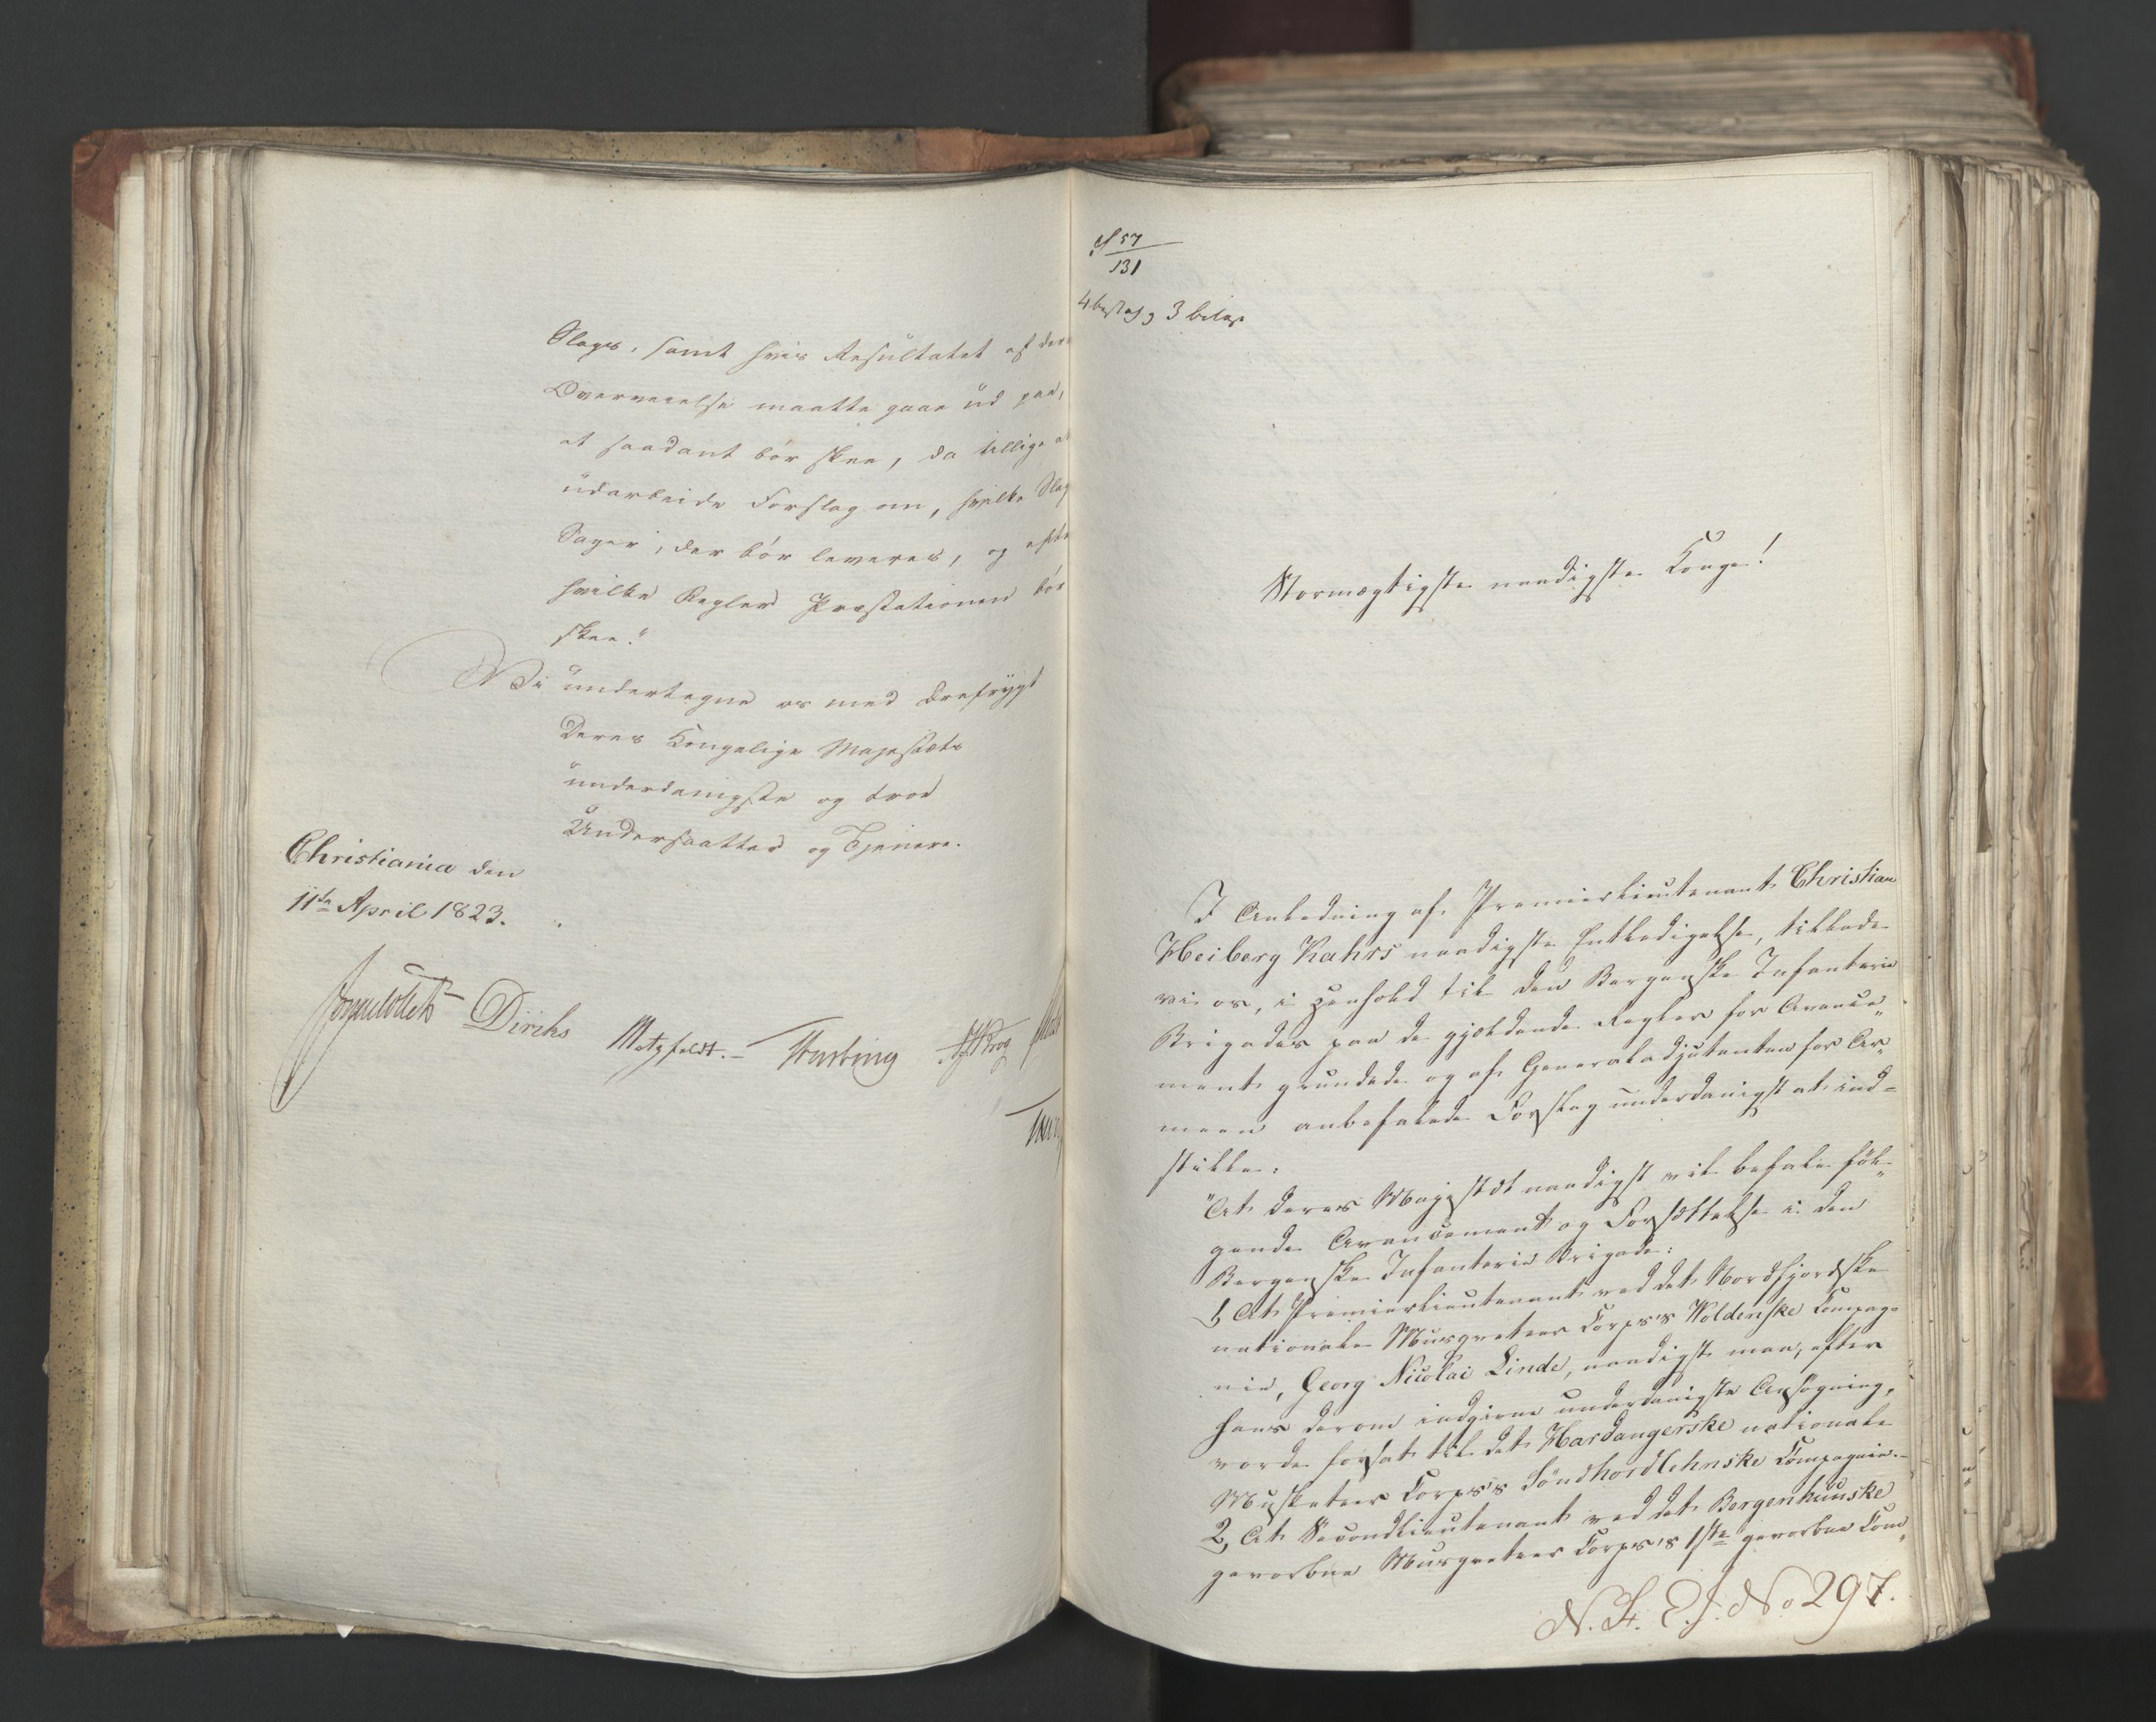 Slags, samt hvis Resultatet af den
Overveielse maatte gaae ud paa,
at saadant bør skee, da tillige at
udarbeide Forslag om, hvilke Slag
Sager, der bør leveres, og efter
hvilke Regler Præstationen bør
skee."
Vi undertegne os med Ærefrygt
Deres Kongelige Majestæts
underdanigste og troe
Undersaatter og Tjenere.
Christiania den
11te April 1823.
Sommerhielm Diriks Motzfeldt. Krog
57
131
3 bilag
Stormægtigste naadigste Konge!
I Anledning af Premierlieutenant Christian
Heiberg Kahrs naadigste Entledigelse, tillade
vi os, i Henhold til den Bergenske Infanterie
Brigades paa de gjeldende Regler for Avance-
ment grundede og af Generaladjutanten for Ar-
meen anbefalede Forslag underdanigst at ind-
stille:
"At Deres Majestæt naadigst vil befale føl-
gende Avancement og Forsættelse i den
Bergenske Infanterie Brigade:
1, At Premierlieutenant ved det Nordfjordske
nationale Musqueteer Corps's Woldenske Compag-
nie, Georg Nicolai Linde, naadigst maa, efter
hans derom indgivne underdanigste Ansøgning,
vorde forsat til det Hardangerske nationale
Musketeer Corps's Söndhordlehnske Compagnie.-
2, At Secondlieutenant ved det Bergenhuuske
gevorbne Musqueteer Corps's 1ste gevorbne Com-
No 297.